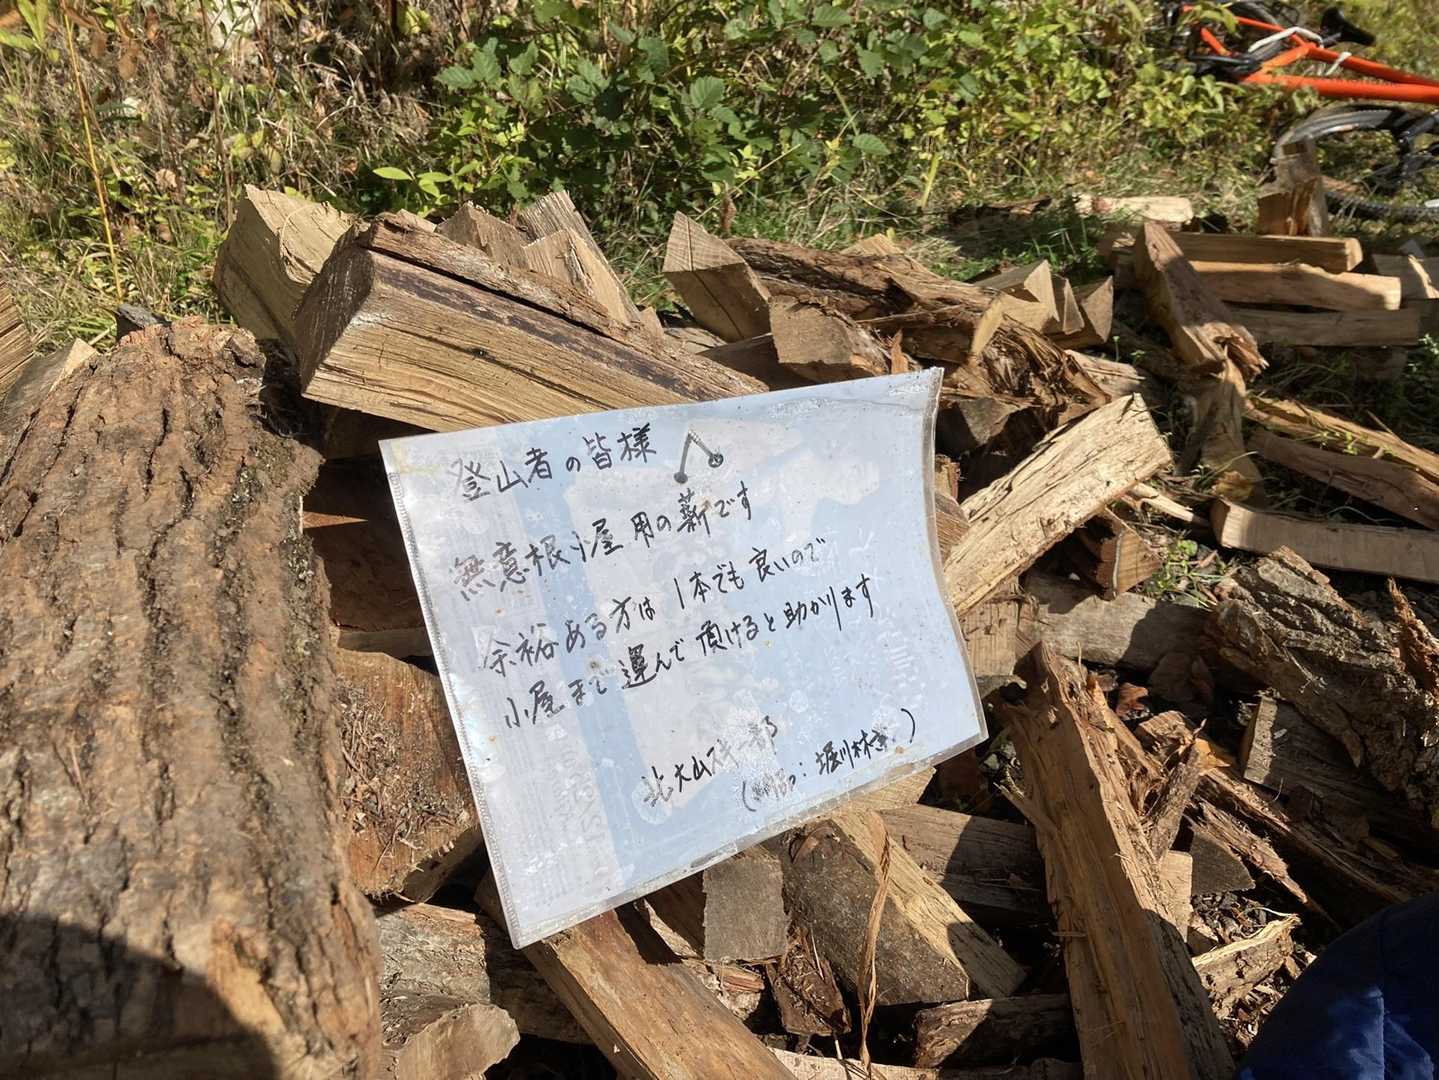 登山者の皆様
無意根小屋用の薪です
余裕ある方は1本でも良いので
小屋まで運んで頂けると助かります
北大山スキー部
(協力: 堀川林業)